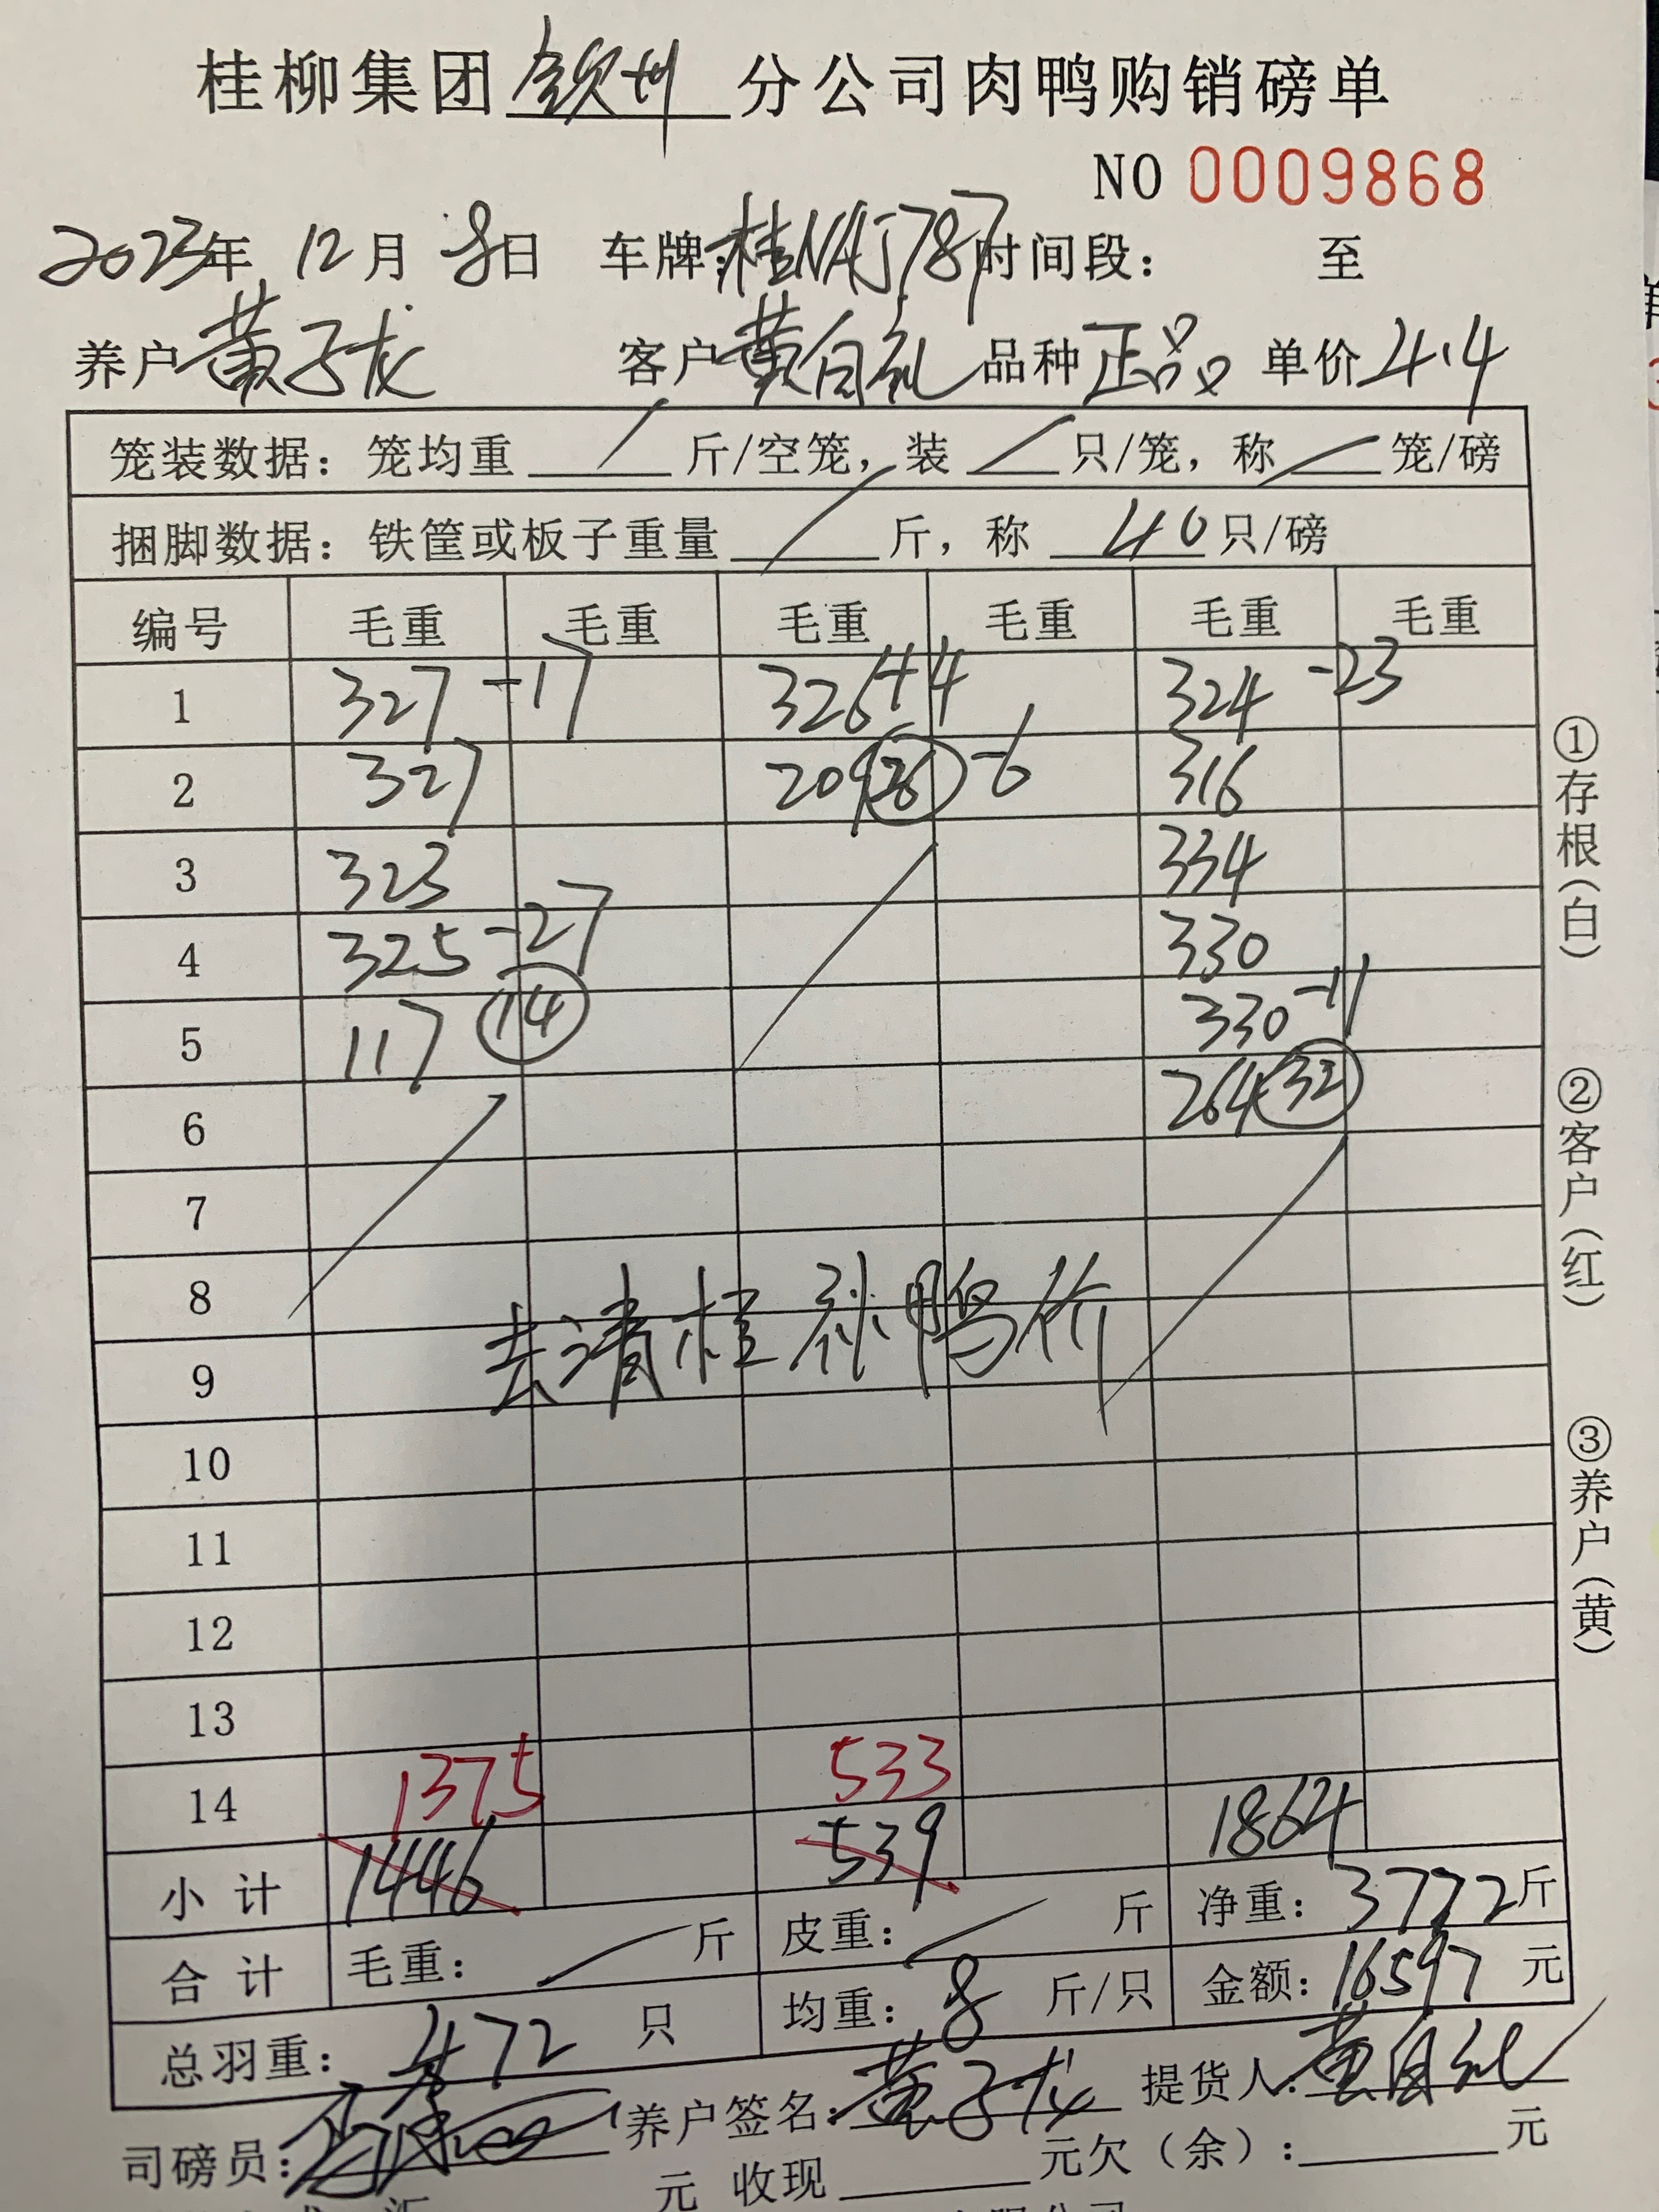 桂柳集团 钦州 分公司肉鸭购销磅单
NO 0009868
2023年 12月 8日 车牌:桂NAJ787 时间段: 至
养户 黄子龙 客户 黄自礼 品种 正品 单价 4.4
笼装数据: 笼均重 / 斤/空笼, 装 / 只/笼, 称 / 笼/磅
捆脚数据: 铁筐或板子重量 / 斤, 称 40 只/磅
编号 毛重 毛重 毛重 毛重 毛重 毛重
1 327 -17 326 +4 324 -23
2 327 209 26 -6 316
3 323 334
4 325 -27 330
5 117 14 330 -11
6 264 32
7
8
去清桂 补鸭价
9
10
11
12
13
14 1375 533
小计 1446 539 1864
合计 毛重: / 斤 皮重: / 斤 净重: 3772斤
总羽重: 472 只 均重: 8 斤/只 金额: 16597 元
司磅员: 养户签名: 黄子龙 提货人: 黄自礼
元 收现 元欠(余): 元
①存根(白)
②客户(红)
③养户(黄)